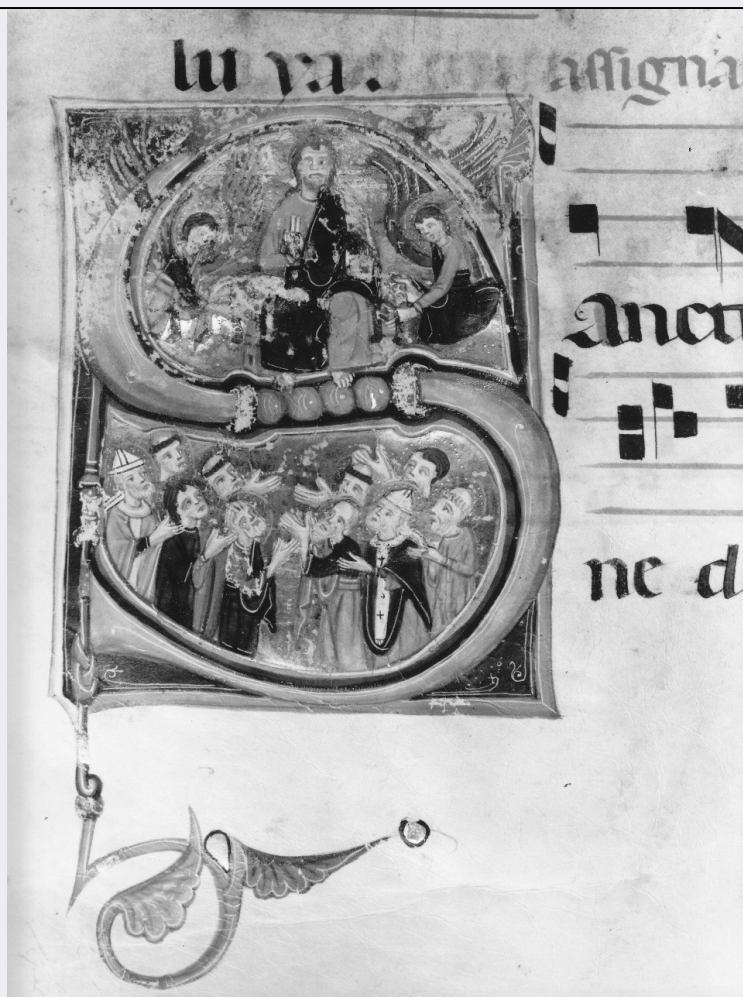 lu ya. assigna
anct
ne d